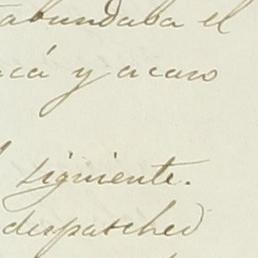 abundaba el
acá y acaso
siguiente.
despatched